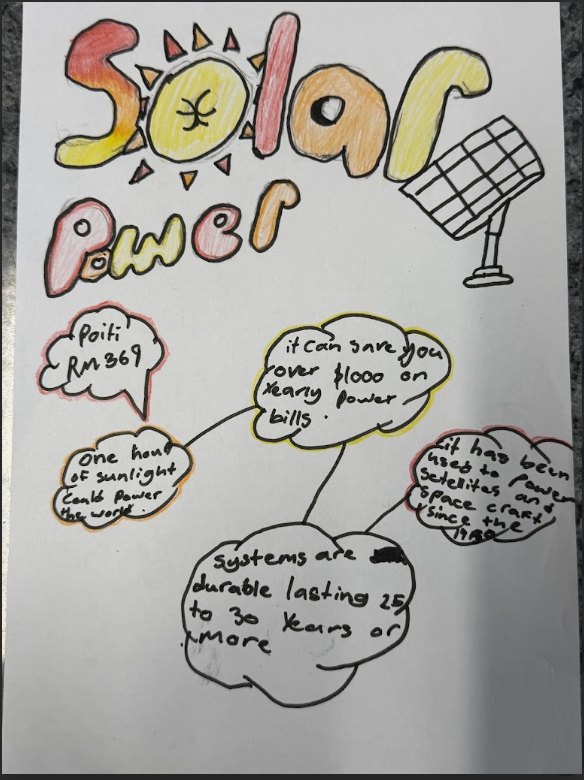 Solar
Power
Poiti
RM369
it can save you
over $1000 on
Yearly Power
bills.
one hour
of sunlight
Could Power
the world.
it has been
used to power
setellites and
space craft
since the
systems are
durable lasting 25
to 30 Years or
more